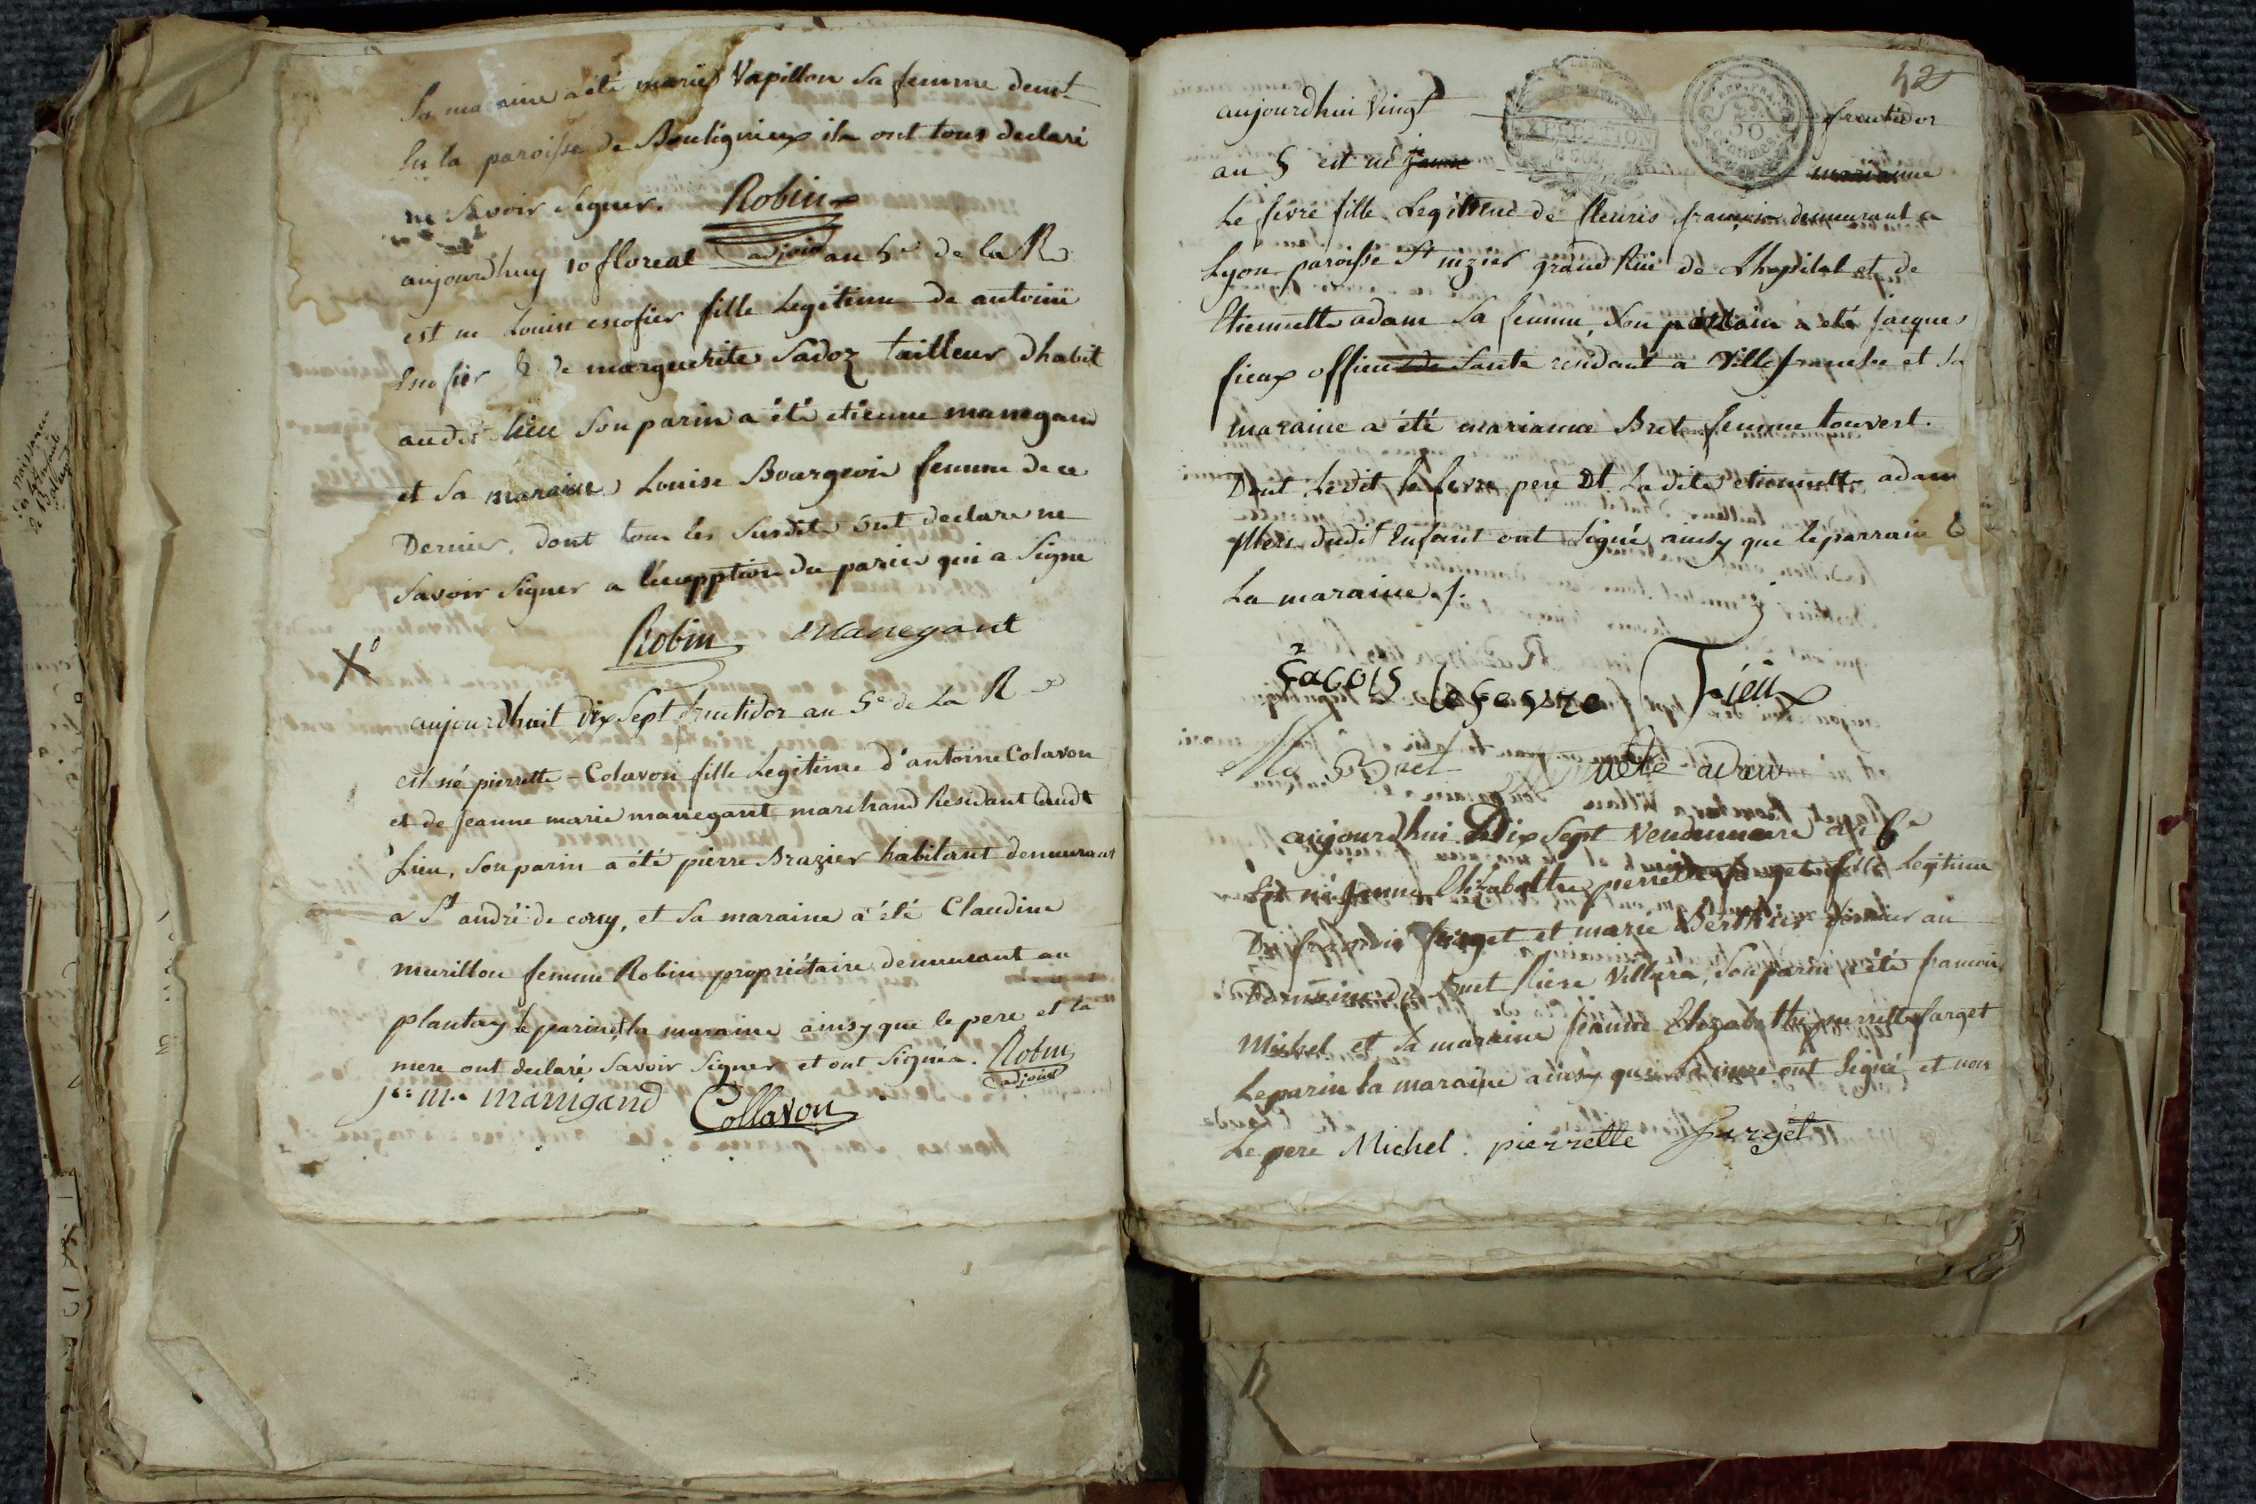 Sa maraine a été marie Vapillon Sa femme demt
En la paroisse de Bouligneux ils ont tous declaré
ne Savoir Signer. Robin
adjoint
aujourdhuy 10 floreal an 5e de la R
est né Louise escofier fille Legitime de antoine
escofier & de marguerite Sadoz tailleur dhabit
audit lieu Son parin a été etienne manegand
et Sa maraine Louise Bourgeois femme de ce
Dernier, dont tous les Susdits ont declare ne
Savoir Signer a l'excepption du parin qui a Signe
Robin Manegant
X
aujourdhuit Dix Sept fructidor an 5e de La R
est né pierrette Colavon fille Legitime d'antoine Colavon
et de Jeanne marie manegant marchand Residant audt
Lieu, Son parin a été pierre Brazier habitant demeurant
a St andré de corcy, et Sa maraine a été Claudine
murillon femme Robin propriétaire demeurant au
plantay le parin, la maraine ainsy que le pere et la
mere ont declaré Savoir Signer et ont Signés. Robin
adjoint
Jne Mie Manigand Collavon
42
aujourdhui Vingt fructidor
an 5 est né Jeanne marianne
Le fevre fille Legitime de fleuris françois demeurant a
Lyon paroisse St nizier grand Rue de Lhopital et de
Etiennette adam Sa femme, Son parrain a été Jacques
fieux officier de Santé residant a Villefranche et Sa
maraine a été marianne Bret femme touvert.
Dont Ledit le fevre pere Et Ladite etiennette adam
Mere dudit Enfant ont Signé ainsy que le parrain &
La maraine /.
facois lefevre fieux
Ma Bret adam
aujourdhui Dix Sept Vendemiaire an 6e
Est né Jeanne Elizabethe perrette farget fille Legitime
De françois farget et marie Berthier fermier au
Domaine du Riere Villars, Son parin a été francois
Michel et Sa maraine Jeanne Elizabethe pierrette farget
Le parin la maraine ainsy que la mere ont Signé et non
Le pere Michel. pierrette farget